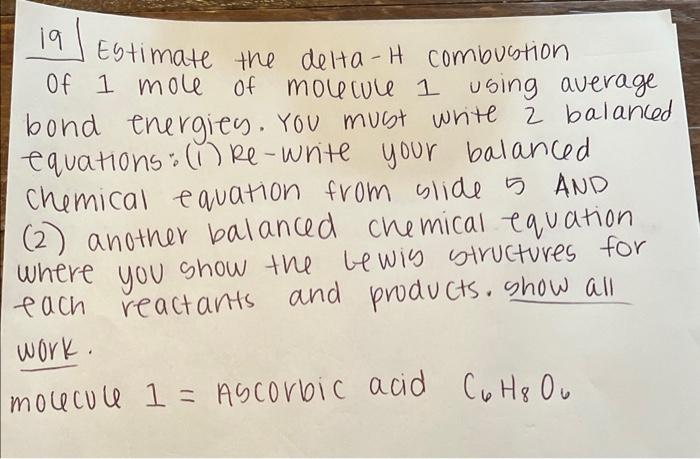 19 Estimate the delta-H combustion
of 1 mole of molecule 1 using average
bond energies. You must write 2 balanced
equations: (1) Re-write your balanced
chemical equation from slide 5 AND
(2) another balanced chemical equation
where you show the Lewis structures for
each reactants and products. show all
work.
molecule 1 = Ascorbic acid C₆H₈O₆